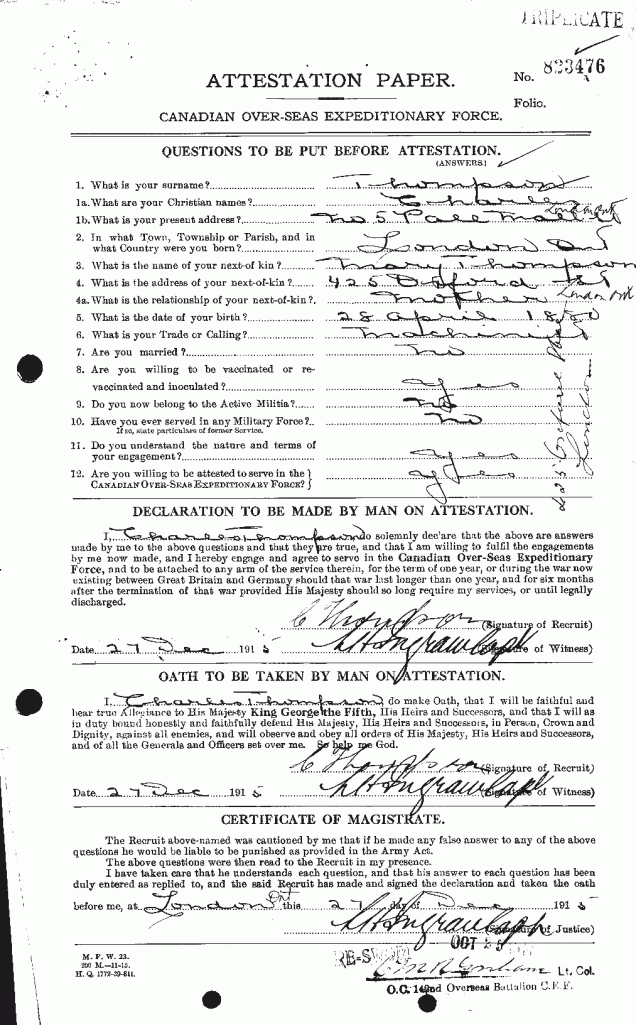 TRIPLICATE
No. 823476
ATTESTATION PAPER.
Folio.
CANADIAN OVER-SEAS EXPEDITIONARY FORCE.
QUESTIONS TO BE PUT BEFORE ATTESTATION.
(ANSWERS.)
1. What is your surname? Thompson
1a. What are your Christian names? Charles
1b. What is your present address? No 5 Pall Mall London Ont
2. In what Town, Township or Parish, and in
what Country were you born? London Ont
3. What is the name of your next-of kin? Mary Thompson
4. What is the address of your next-of-kin? 425 Oxford St London Ont
4a. What is the relationship of your next-of-kin?. Mother
5. What is the date of your birth? 28 April 1880
6. What is your Trade or Calling? Machinist
7. Are you married? no
8. Are you willing to be vaccinated or re-
vaccinated and inoculated? yes
9. Do you now belong to the Active Militia? no
10. Have you ever served in any Military Force?.. no
If so, state particulars of former Service.
11. Do you understand the nature and terms of
your engagement? yes
12. Are you willing to be attested to serve in the }
CANADIAN OVER-SEAS EXPEDITIONARY FORCE? } yes
London
DECLARATION TO BE MADE BY MAN ON ATTESTATION.
I, Charles Thompson do solemnly declare that the above are answers
made by me to the above questions and that they are true, and that I am willing to fulfil the engagements
by me now made, and I hereby engage and agree to serve in the Canadian Over-Seas Expeditionary
Force, and to be attached to any arm of the service therein, for the term of one year, or during the war now
existing between Great Britain and Germany should that war last longer than one year, and for six months
after the termination of that war provided His Majesty should so long require my services, or until legally
discharged.
C Thompson (Signature of Recruit)
Date 27 Dec 1915 (Signature of Witness)
OATH TO BE TAKEN BY MAN ON ATTESTATION.
I, Charles Thompson do make Oath, that I will be faithful and
bear true Allegiance to His Majesty King George the Fifth, His Heirs and Successors, and that I will as
in duty bound honestly and faithfully defend His Majesty, His Heirs and Successors, in Person, Crown and
Dignity, against all enemies, and will observe and obey all orders of His Majesty, His Heirs and Successors,
and of all the Generals and Officers set over me. So help me God.
C Thompson (Signature of Recruit)
Date 27 Dec 1915 (Signature of Witness)
CERTIFICATE OF MAGISTRATE.
The Recruit above-named was cautioned by me that if he made any false answer to any of the above
questions he would be liable to be punished as provided in the Army Act.
The above questions were then read to the Recruit in my presence.
I have taken care that he understands each question, and that his answer to each question has been
duly entered as replied to, and the said Recruit has made and signed the declaration and taken the oath
before me, at London Ont this 27 day of Dec 1915
(Signature of Justice)
OCT 25
RE-SWORN
M. F. W. 23.
200 M.—11-15.
H. Q. 1772-39-841.
Lt. Col.
O.C. 142nd Overseas Battalion C.E.F.